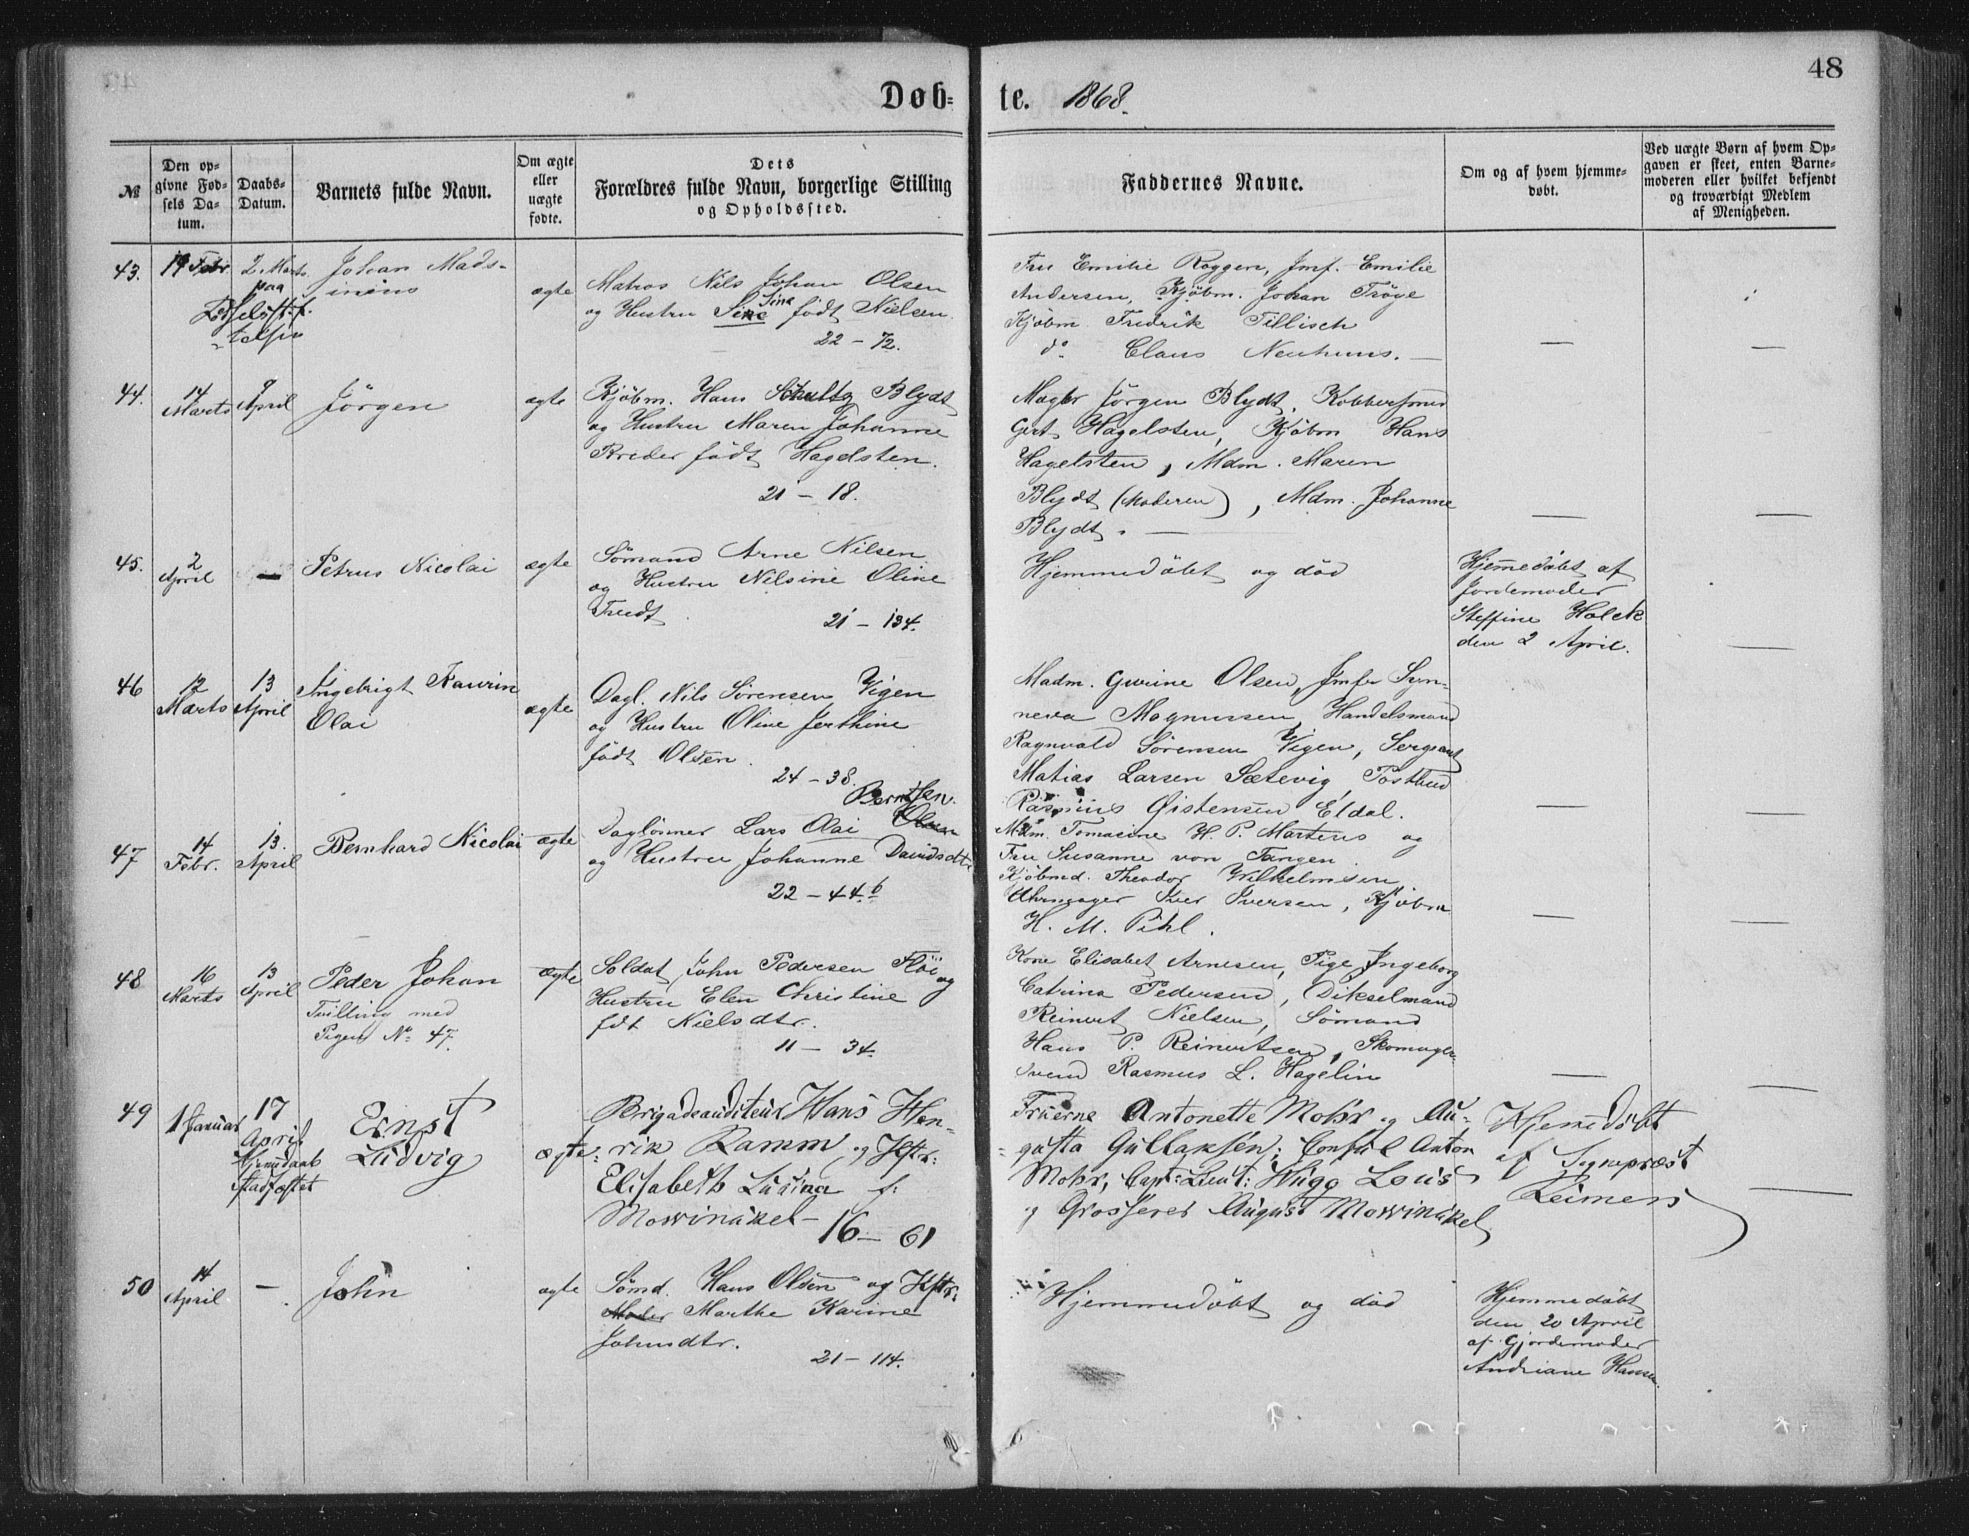 48
Døb= te. 1868.
№
Den op=
givne Fød=
sels Da=
tum.
Daabs=
Datum.
Barnets fulde Navn.
Om ægte
eller
uægte
fødte.
Dets
Forældres fulde Navn, borgerlige Stilling
og Opholdssted.
Faddernes Navne.
Om og af hvem hjemme=
døbt.
Ved uægte Børn af hvem Op=
gaven er skeet, enten Barne=
moderen eller hvilket bekjendt
og troværdigt Medlem
af Menigheden.
43.
19 Febr.
2 Marts
paa
Fødselsstif-
telsen
Johan Mads-
inius
ægte
Matros Nils Johan Olsen
og Hustru Sine født Nielsen.
22 – 72.
Fru Emilie Roggen, Jmf. Emilie
Andersen, Kjøbm. Johan Trøye
Kjøbm Fredrik Tillisch
do Claus Neuhuus. —
—
—
44.
14
Marts
9
April
Jörgen
ægte
Kjöbm. Hans Schultz Blydt
og Hustru Maren Johanne
født Hagelsten.
21 – 18.
Jörgen Blydt, Kobbersmed
Gert Hagelsten, Kjöbm Hans
Hagelsten, Mdm. Maren
Blydt (Moderen), Mdm. Johanne
Blydt. —
—
—
45.
2
April
—
Petrus Nicolai
ægte
Sömand Arne Nilsen
og Hustru Nilsine Oline
21 – 134.
Hjemmedöbt og död
Hjemedöbt af
Jordemoder
Steffine Holck
den 2 April.
—
46
12
Marts
13
April
Ingebrigt Kaurin
Olai
ægte
Dagl. Nils Sörensen Vigen
og Hustru Oline Jerthine
født Olsen.
24 – 38.
Madm. Gurine Olsen, Jmfr Syn-
neva Magnussen, Handelsmand
Ragnvald Sörensen Vigen, Sergeant
Matias Larsen Sætevig, Postbud
Rasmus Øistensen Eldal.
—
—
47
14
Febr.
13.
April
Bernhard Nicolai
ægte
Berntsen.
Daglönner Lars Olai Olsen
og Hustru Johanne Davidsdtr
22 – 44.b
Mdm. Tomasine H. P. Martens og
Fru Susanne von Tangen.
Kjöbmd. Theodor Wilhelmsen
Uhrmager Iver Iversen, Kjöbm
H. M. Pihl.
—
—
48
16
Marts
13
April
Peder Johan
Tvilling med
Pigen No 47.
ægte
Soldat John Pedersen Flöi og
Hustru Elen Christine
fdt Nielsdtr.
11 – 34.
Kone Elisabet Arnesen, Pige Ingeborg
Catrina Pedersen, Dikselmand
Reinert Nielsen, Sömand
Hans P. Reinertsen, Skomager-
svend Rasmus L. Hagelin
—
—
49
1 Januar
17
April
Hjemdaab
stadfæstet
Ernst
Ludvig
ægte
Brigadeauditeur Hans Hen-
rik Ramm og Hstr:
Elisabeth Lusina f:
Mowinckel –
16 – 61
Fruerne Antonette Mohr og Au-
gusta Gullaksen; Consul Anton
Mohr, Capt: Lieut: Hugo Louis
og Grosserer August Mowinckel
Hjemedöbt
af Sognepræst
Reimers
—
50
14
April
—
John
ægte
Sömd. Hans Olsen og Hstr.
Marthe Karine
Johnsdtr.
21 – 114.
Hjemmedöbt og död
Hjemmedöbt
den 20 April
af Gjordemoder
Andriane Hansen.